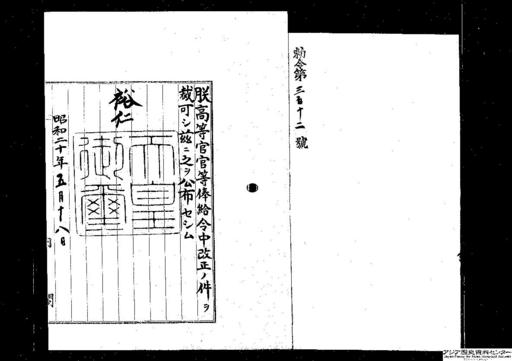 勅令第三百十二號
朕高等官官等俸給令中改正ノ件ヲ
裁可シ茲ニ之ヲ公布セシム
裕仁
天皇御璽
昭和二十年五月十八日
内閣
アジア歴史資料センター